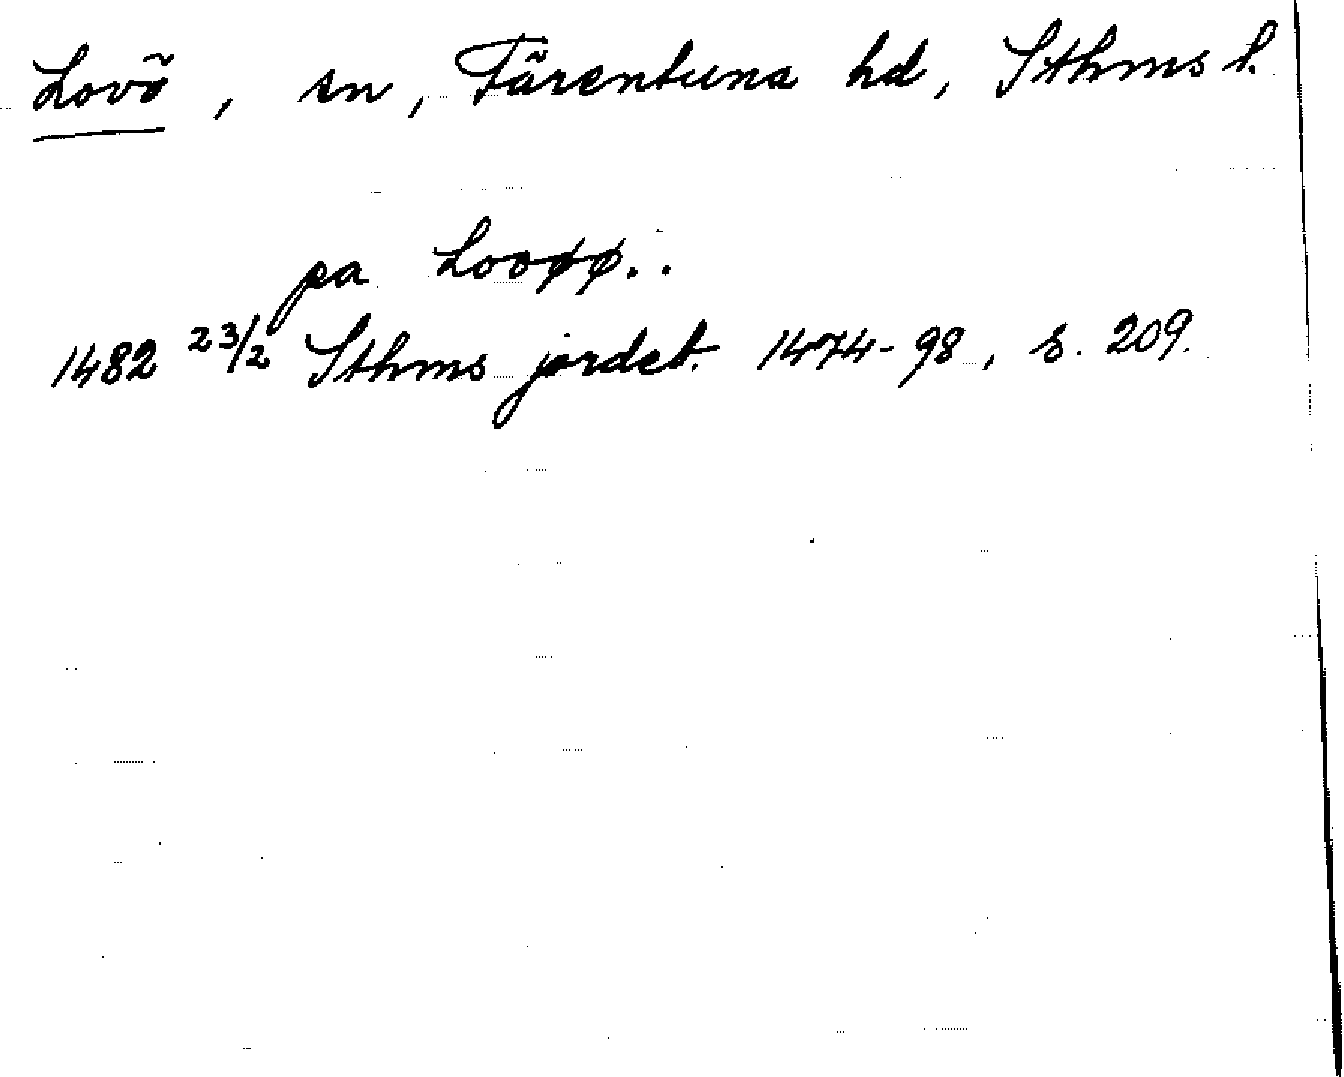 Lovö, sn, Färentuna hd, Sthms l.
pa Looøø..
1482 23/2 Sthms jordeb. 1474-98, s. 209.